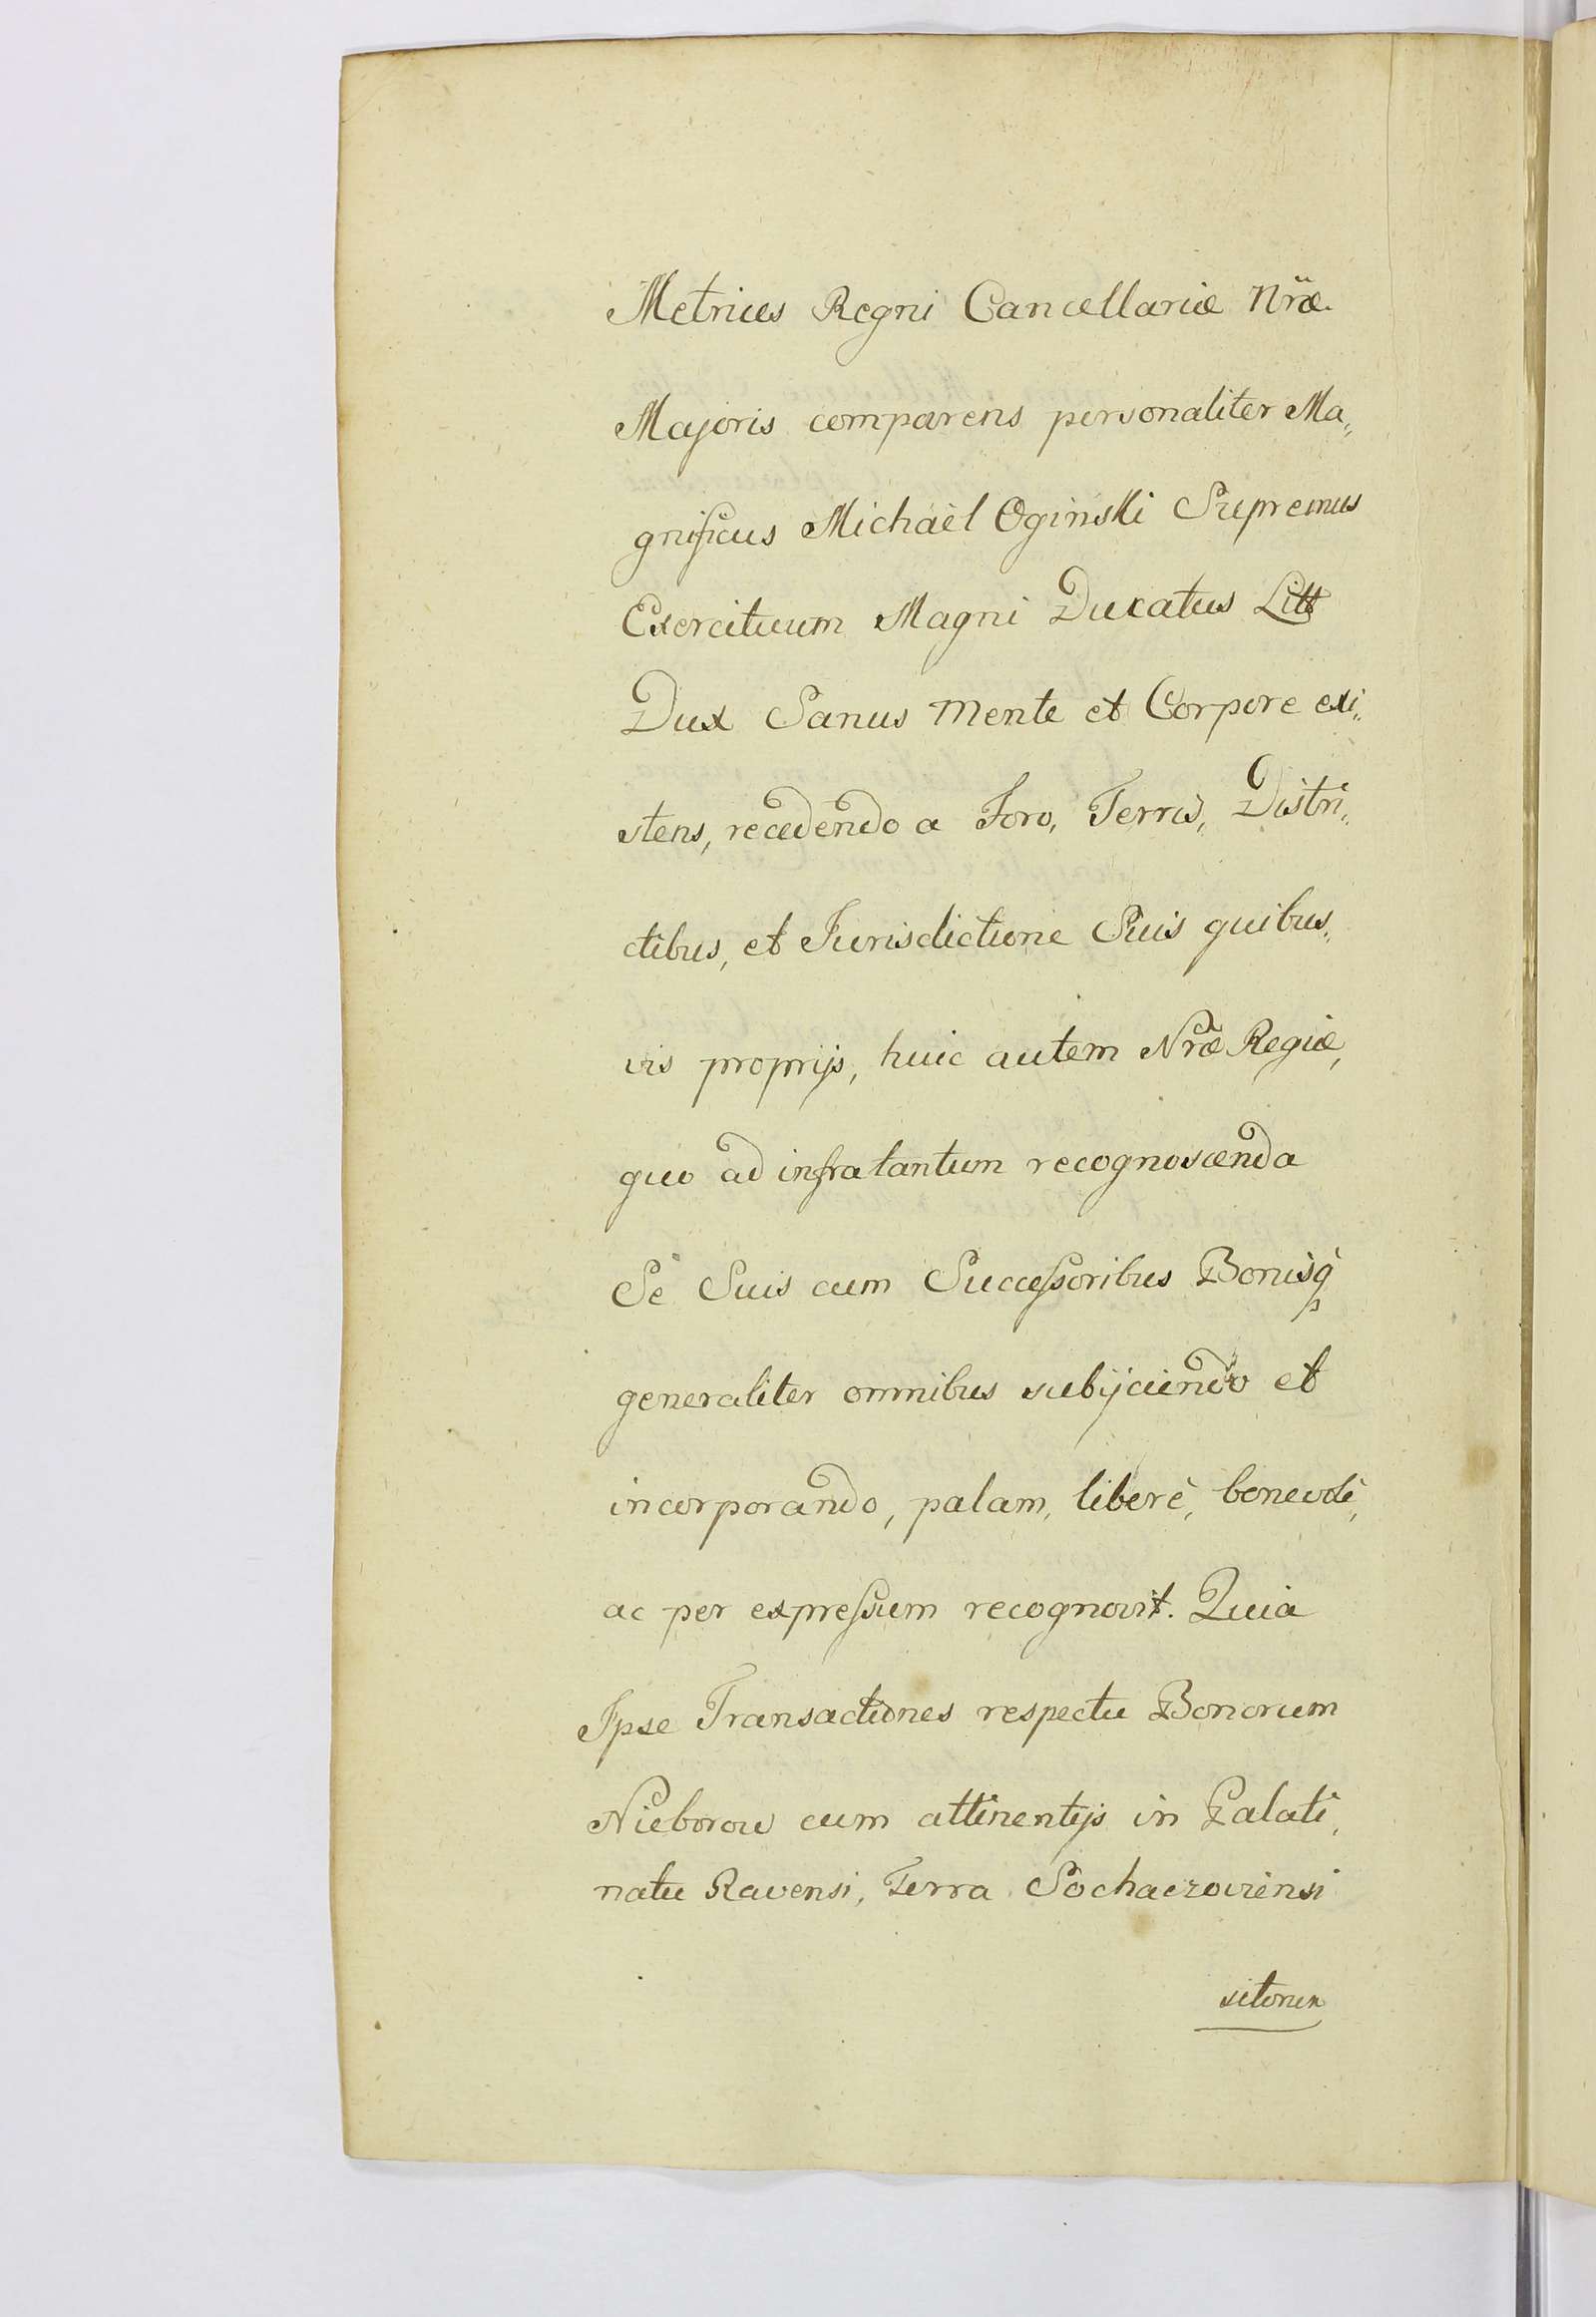 Metrices Regni Cancellariæ Nr̃æ
Majoris comparens personaliter Ma„
gnificus Michaèl Oginski Supremus
Exercituum Magni Ducatus Litt
Dux Sanus Mente et Corpore exi„
stens, recedendo a Foro, Terris, Distri„
ctibus, et Jurisdictione Suis quibus„
vis proprijs, huic autem Nr̃æ Regiæ,
quo ad infra tantum recognoscenda
Se Suis cum Successoribus Bonisq̀
generaliter omnibus subijciendo et
incorporando, palam, liberè, benevolè,
ac per expressum recognovit. Quia
Ipse Transactiones respectu Bonorum
Nieborow cum attinentijs in Palati„
natu Ravensi, Terra Sochaczoviensi
sitorum